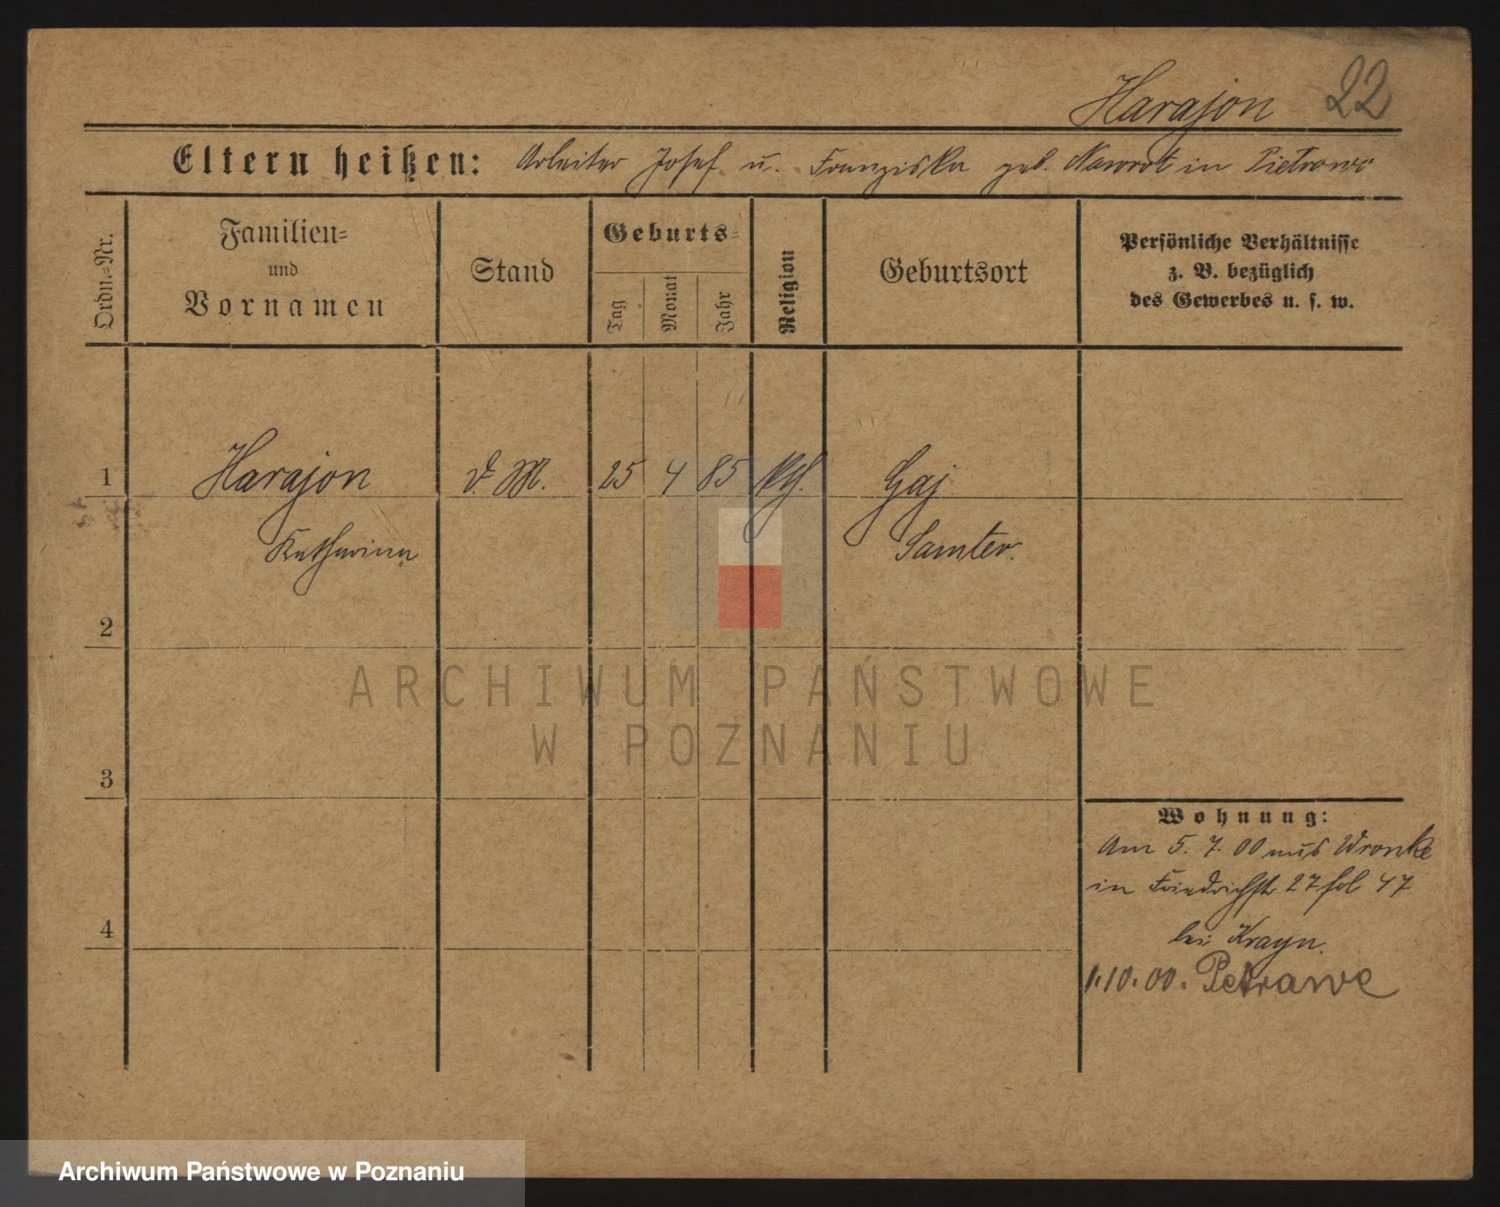 Harajon 22
Eltern heißen: Arbeiter Josef u. Franziska geb. Nawrot in Pietrowo
Ordn.-Nr.
Familien-
und
Vornamen
Stand
Geburts-
Tag
Monat
Jahr
Religion
Geburtsort
Persönliche Verhältnisse
z. B. bezüglich
des Gewerbes u. s. w.
1 Harajon d. M. 25 4 85 kth. Gaj
Katharina Samter.
2
ARCHIWUM PAŃSTWOWE
W POZNANIU
3
Wohnung:
Am 5. 7. 00 aus Wronke
in Friedrichstr 27 fol 47
4
bei Krayn.
1.10.00. Petrawe
Archiwum Państwowe w Poznaniu